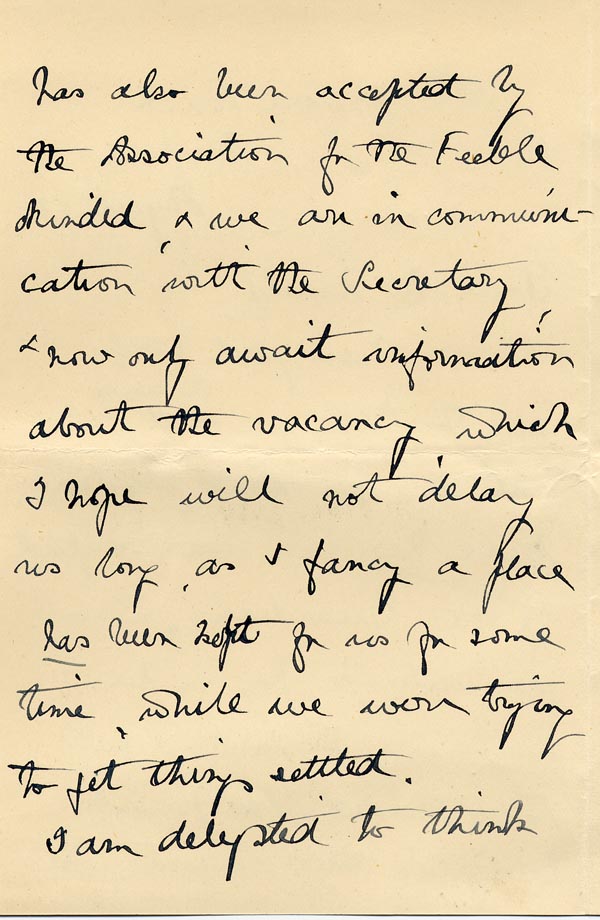 has also been accepted by
the Association for the Feeble
Minded, & we are in communi-
cation with the Secretary,
& now only await information
about the vacancy, which
I hope will not delay
us long, as I fancy a place
has been kept for us for some
time, while we were trying
to get things settled.
I am delighted to think